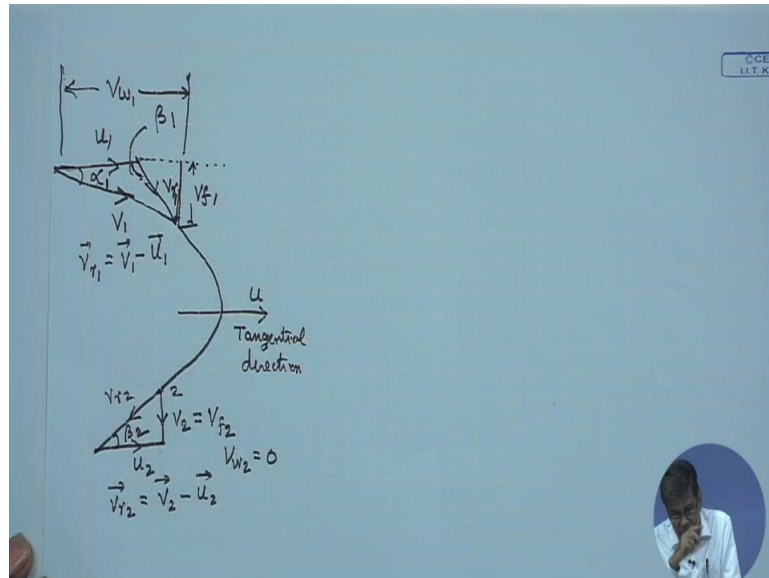 ©CE
I.I.T. K
V_{w_1}
β_1
u_1
α_1
V_{r_1}
V_{f_1}
V_1
\vec{V}_{r_1} = \vec{V}_1 - \vec{u}_1
u
Tangential
direction
V_{r2}
2
β_2
V_2 = V_{f_2}
u_2
V_{w_2} = 0
\vec{V}_{r_2} = \vec{V}_2 - \vec{u}_2